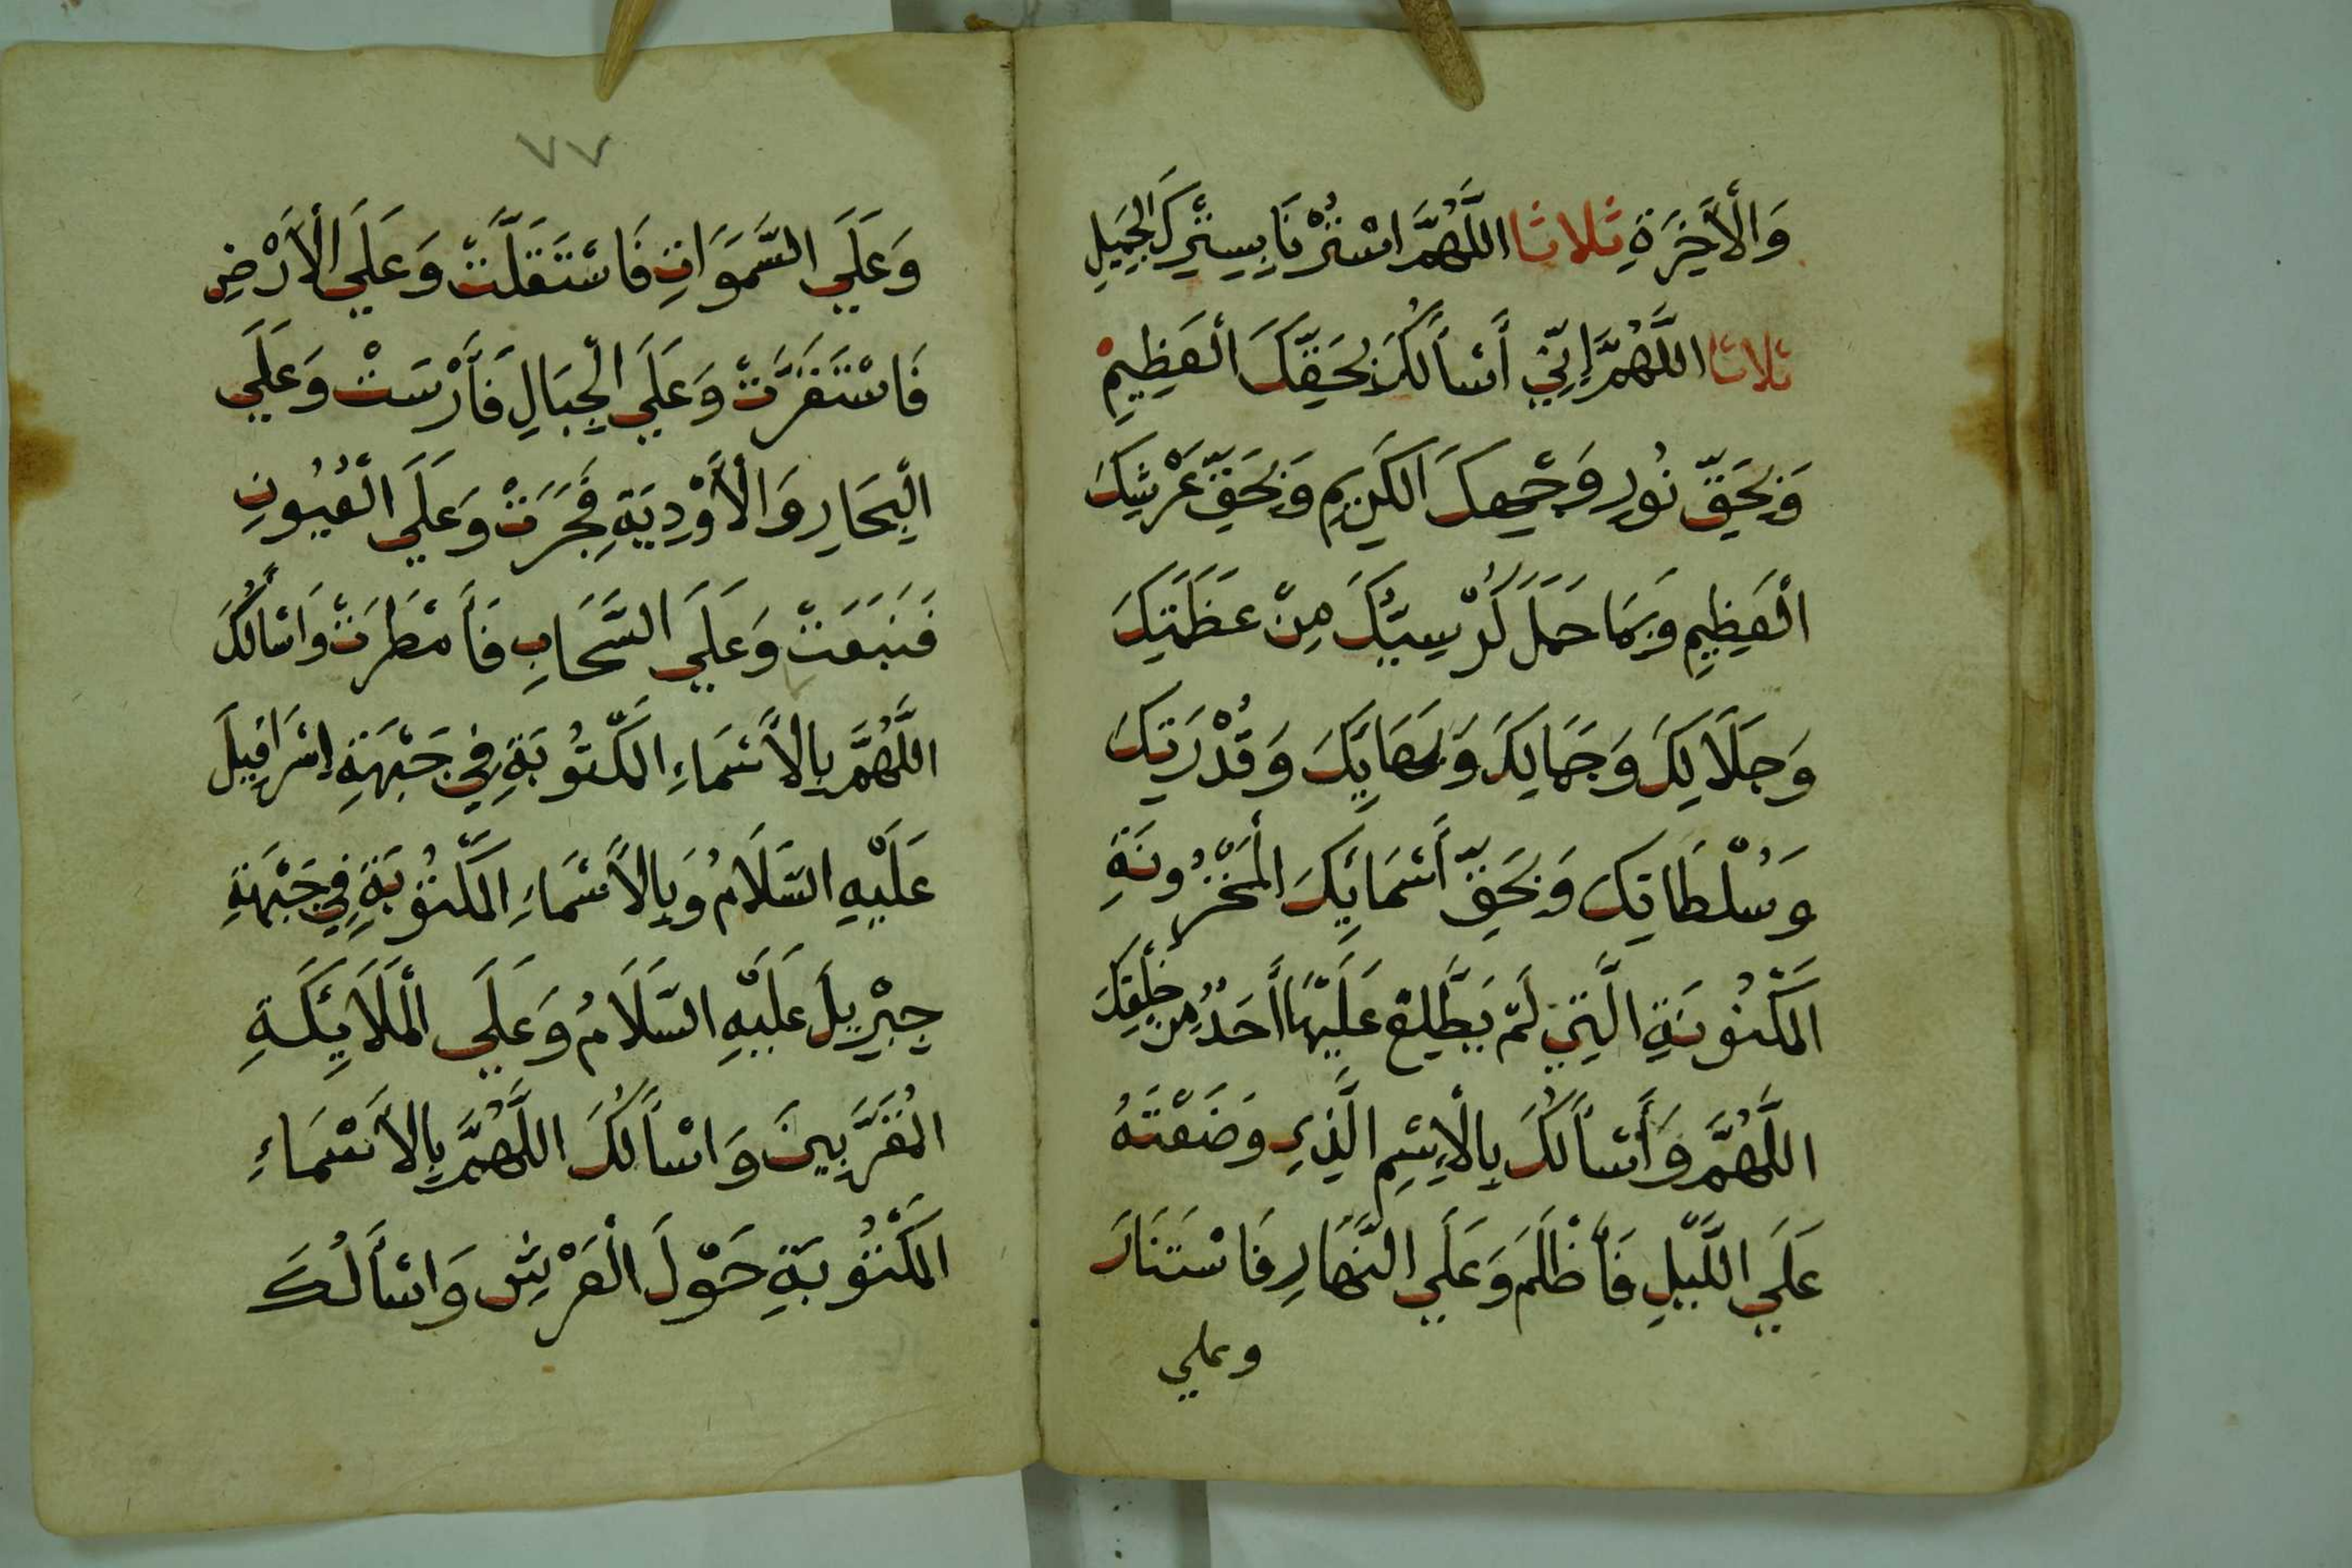 وَالْأَخِرَةِ ثلاثا اللَّهُمَّ اسْتُرْنَا بِسِتْرِكَ الْجَمِيلِ
ثلاثا اللَّهُمَّ إِنِّي أَسْأَلُكَ بِحَقِّكَ الْعَظِيمِ
وَبِحَقِّ نُورِ وَجْهِكَ الْكَرِيمِ وَبِحَقِّ عَرْشِكَ
الْعَظِيمِ وَبِمَا حَمَلَ كُرْسِيُّكَ مِنْ عَظَمَتِكَ
وَجَلَالِكَ وَجَمَالِكَ وَبَهَايِكَ وَقُدْرَتِكَ
وَسُلْطَانِكَ وَبِحَقِّ أَسْمَائِكَ الْمَخْزُونَةِ
الْمَكْنُونَةِ الَّتِي لَمْ يَطَّلِعْ عَلَيْهَا أَحَدٌ مِنْ خَلْقِكَ
اللَّهُمَّ وَأَسْأَلُكَ بِالْاِسْمِ الَّذِي وَضَعْتَهُ
عَلَي اللَّيْلِ فَأَظْلَمَ وَعَلَي النَّهَارِ فَاسْتَنَارَ
وعلي
٧٧
وَعَلَي السَّمَوَاتِ فَاسْتَقَلَّتْ وَعَلَي الْأَرْضِ
فَاسْتَقَرَّتْ وَعَلَي الْجِبَالِ فَأَرْسَتْ وَعَلَي
الْبِحَارِ وَالْأَوْدِيَةِ فَجَرَتْ وَعَلَي الْعُيُونِ
فَنَبَعَتْ وَعَلَي السَّحَابِ فَأَمْطَرَتْ وَاسْأَلُكَ
اللَّهُمَّ بِالْأَسْمَاءِ الْمَكْتُوبَةِ فِي جَبْهَةِ إِسْرَافِيلَ
عَلَيْهِ السَّلَامُ وَبِالْأَسْمَاءِ الْمَكْتُوبَةِ فِي جَبْهَةِ
جِبْرِيلَ عَلَيْهِ السَّلَامُ وَعَلَي الْمَلَائِكَةِ
الْمُقَرَّبِينَ وَاسْأَلُكَ اللَّهُمَّ بِالْأَسْمَاءِ
الْمَكْتُوبَةِ حَوْلَ الْعَرْشِ وَاسْأَلُكَ